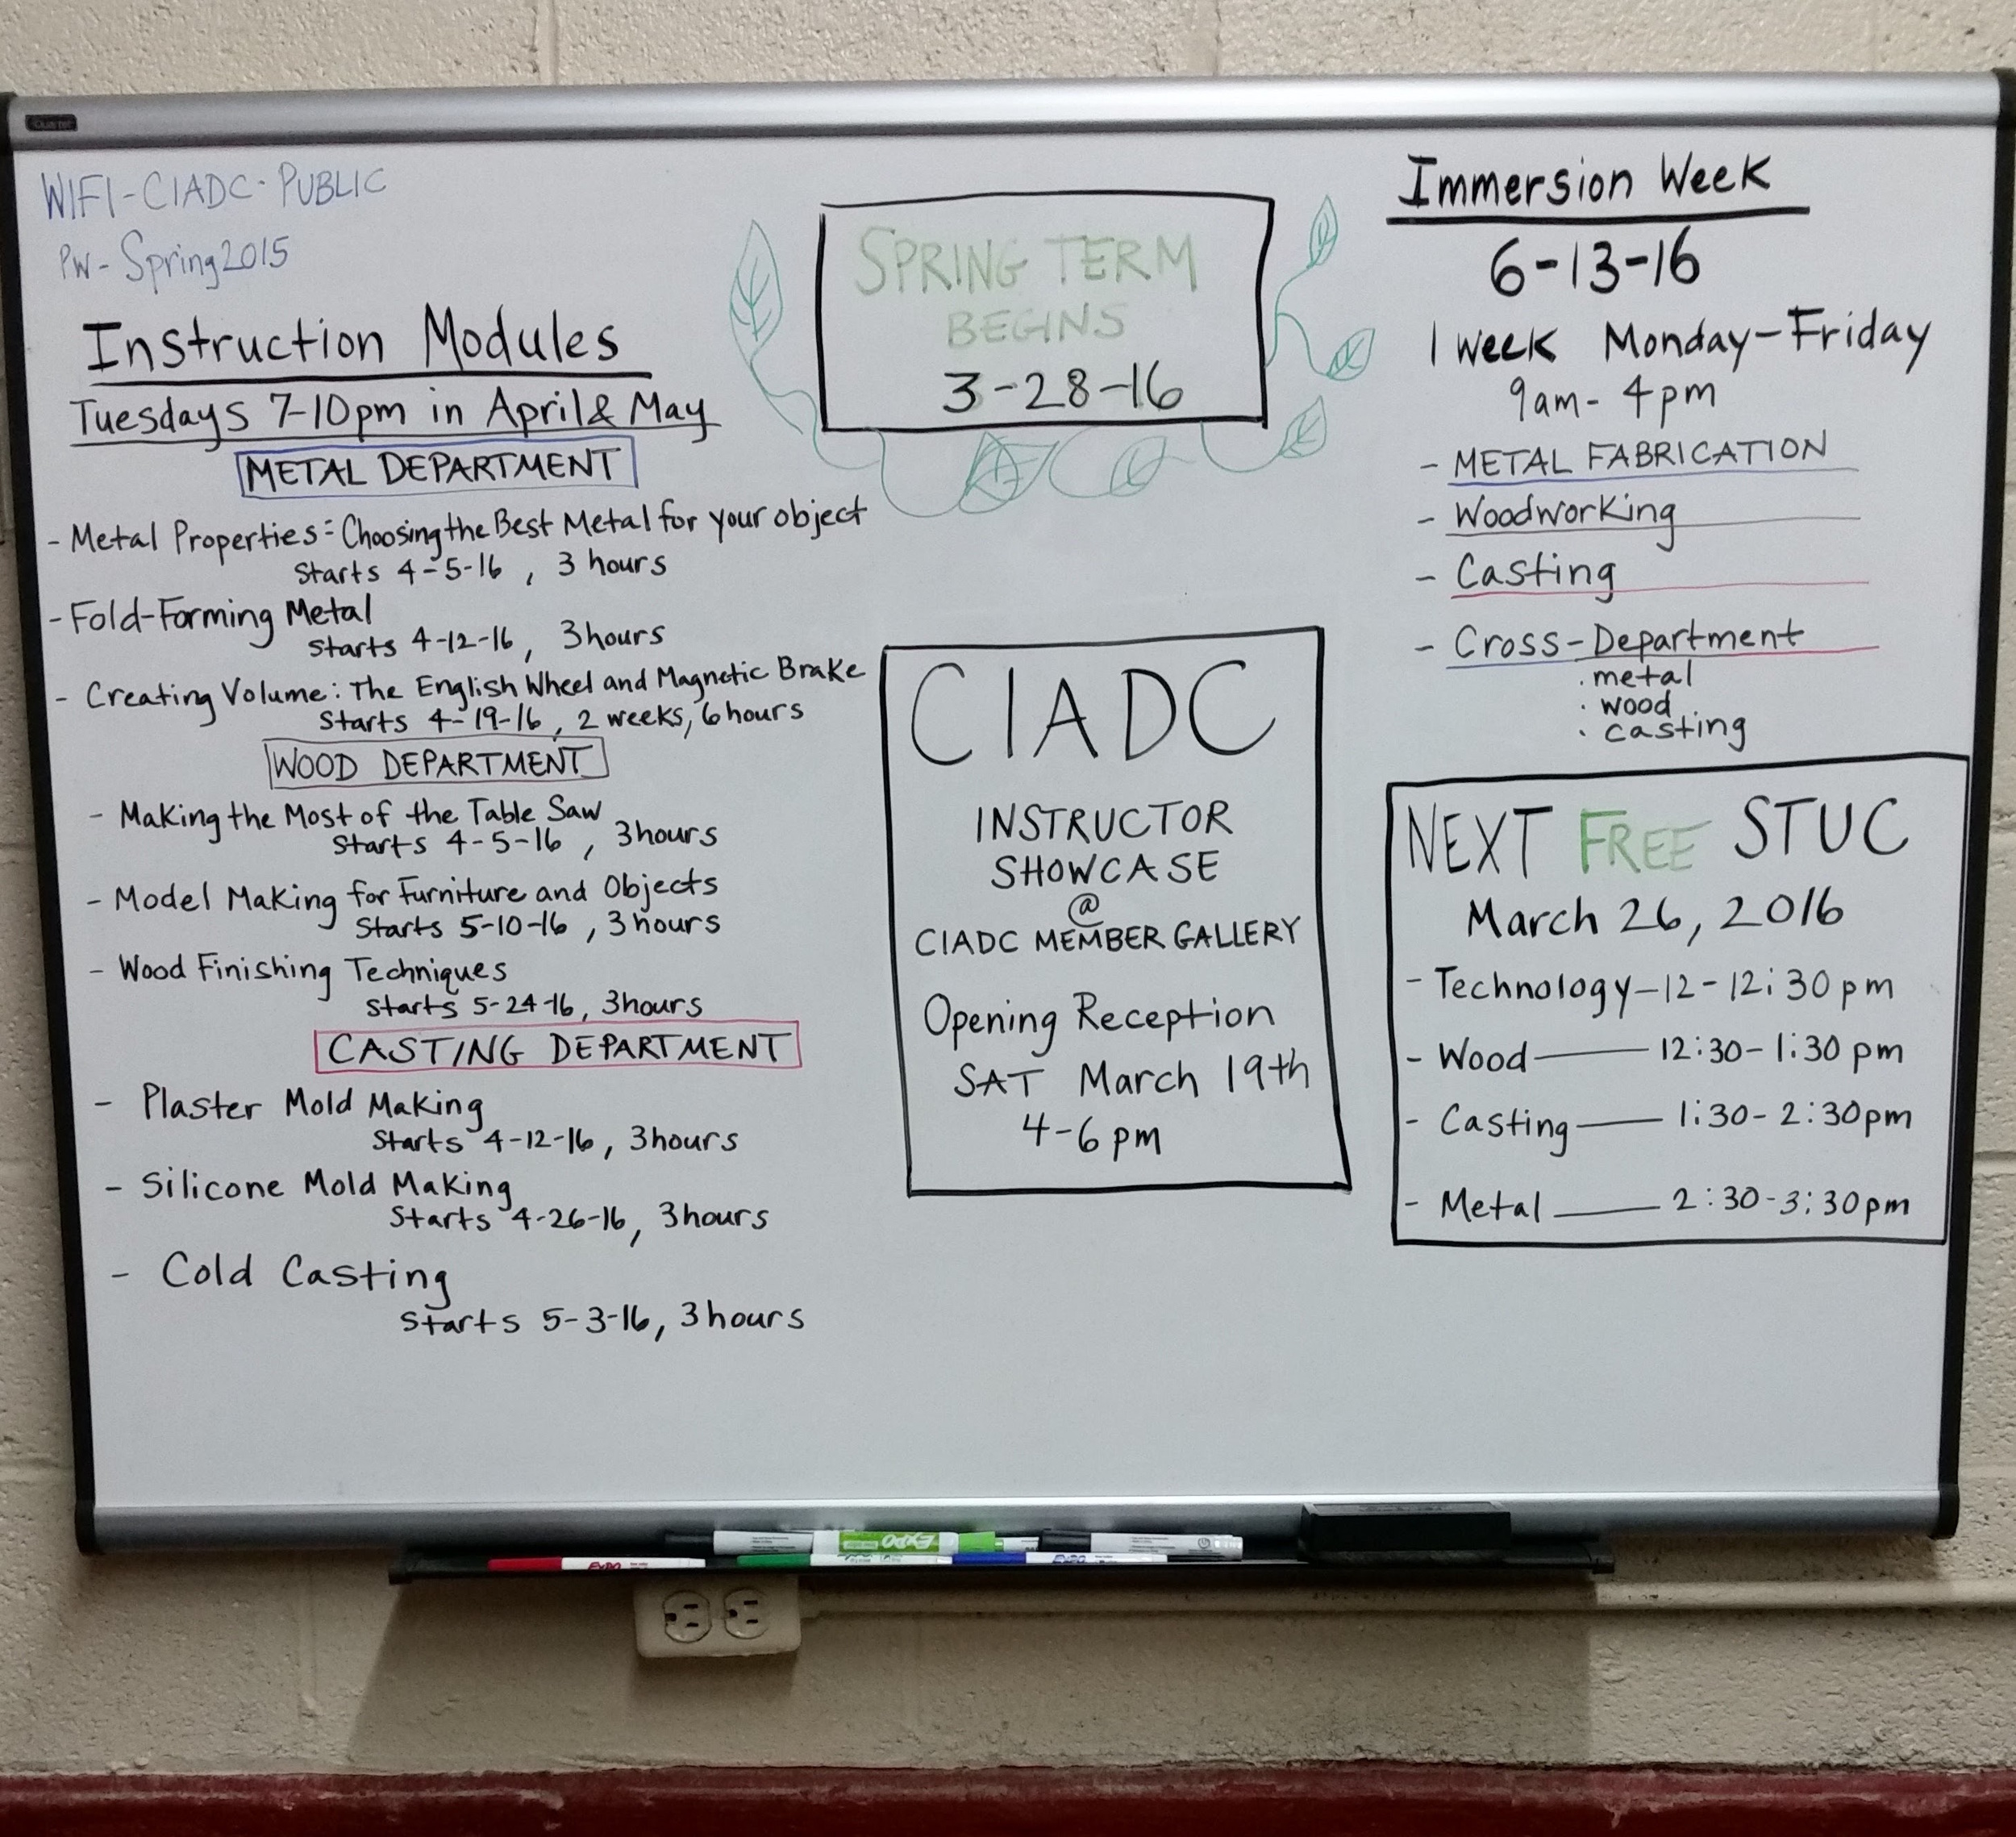 WIFI-CIADC-PUBLIC
PW- Spring2015
Instruction Modules
Tuesdays 7-10pm in April & May
METAL DEPARTMENT
- Metal Properties: Choosing the Best Metal for your object
Starts 4-5-16, 3 hours
- Fold-Forming Metal
Starts 4-12-16, 3 hours
- Creating Volume: The English Wheel and Magnetic Brake
Starts 4-19-16, 2 weeks, 6 hours
WOOD DEPARTMENT
- Making the Most of the Table Saw
Starts 4-5-16, 3 hours
- Model Making for Furniture and Objects
Starts 5-10-16, 3 hours
- Wood Finishing Techniques
Starts 5-24-16, 3 hours
CASTING DEPARTMENT
- Plaster Mold Making
Starts 4-12-16, 3 hours
- Silicone Mold Making
Starts 4-26-16, 3 hours
- Cold Casting
Starts 5-3-16, 3 hours
SPRING TERM
BEGINS
3-28-16
CIADC
INSTRUCTOR
SHOWCASE
@
CIADC MEMBER GALLERY
Opening Reception
SAT March 19th
4-6 pm
Immersion Week
6-13-16
1 week Monday-Friday
9am- 4pm
- METAL FABRICATION
- Woodworking
- Casting
- Cross-Department
. metal
. wood
. casting
NEXT FREE STUC
March 26, 2016
- Technology-12-12:30 pm
- Wood — 12:30-1:30 pm
- Casting — 1:30-2:30pm
- Metal — 2:30-3:30pm
EXPO
EXPO
EXPO